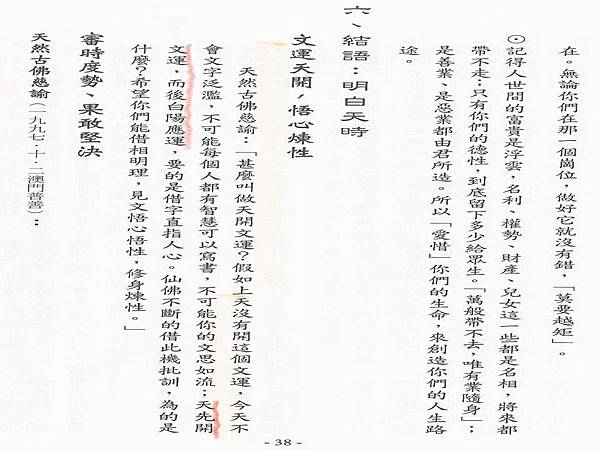 在。無論你們在那一個崗位，做好它就沒有錯，「莫要越矩」。
⊙記得人世間的富貴是浮雲，名利、權勢、財產、兒女這一些都是名相，將來都
帶不走；只有你們的德性，到底留下多少給眾生。「萬般帶不去，唯有業隨身」；
是善業、是惡業都由君所造。所以「愛惜」你們的生命，來創造你們的人生路
途。
六、結語：明白天時
文運天開，悟心煉性
天然古佛慈諭：「甚麼叫做天開文運？假如上天沒有開這個文運，今天不
會文字泛濫，不可能每個人都有智慧可以寫書，不可能你的文思如流；天先開
文運，而後白陽應運，要的是借字直指人心。仙佛不斷的借此機批訓，為的是
什麼？希望你們能借相明理，見文悟心悟性，修身煉性。」
審時度勢、果敢堅決
天然古佛慈諭(一九九七·十·二澳門普善)：
- 38 -